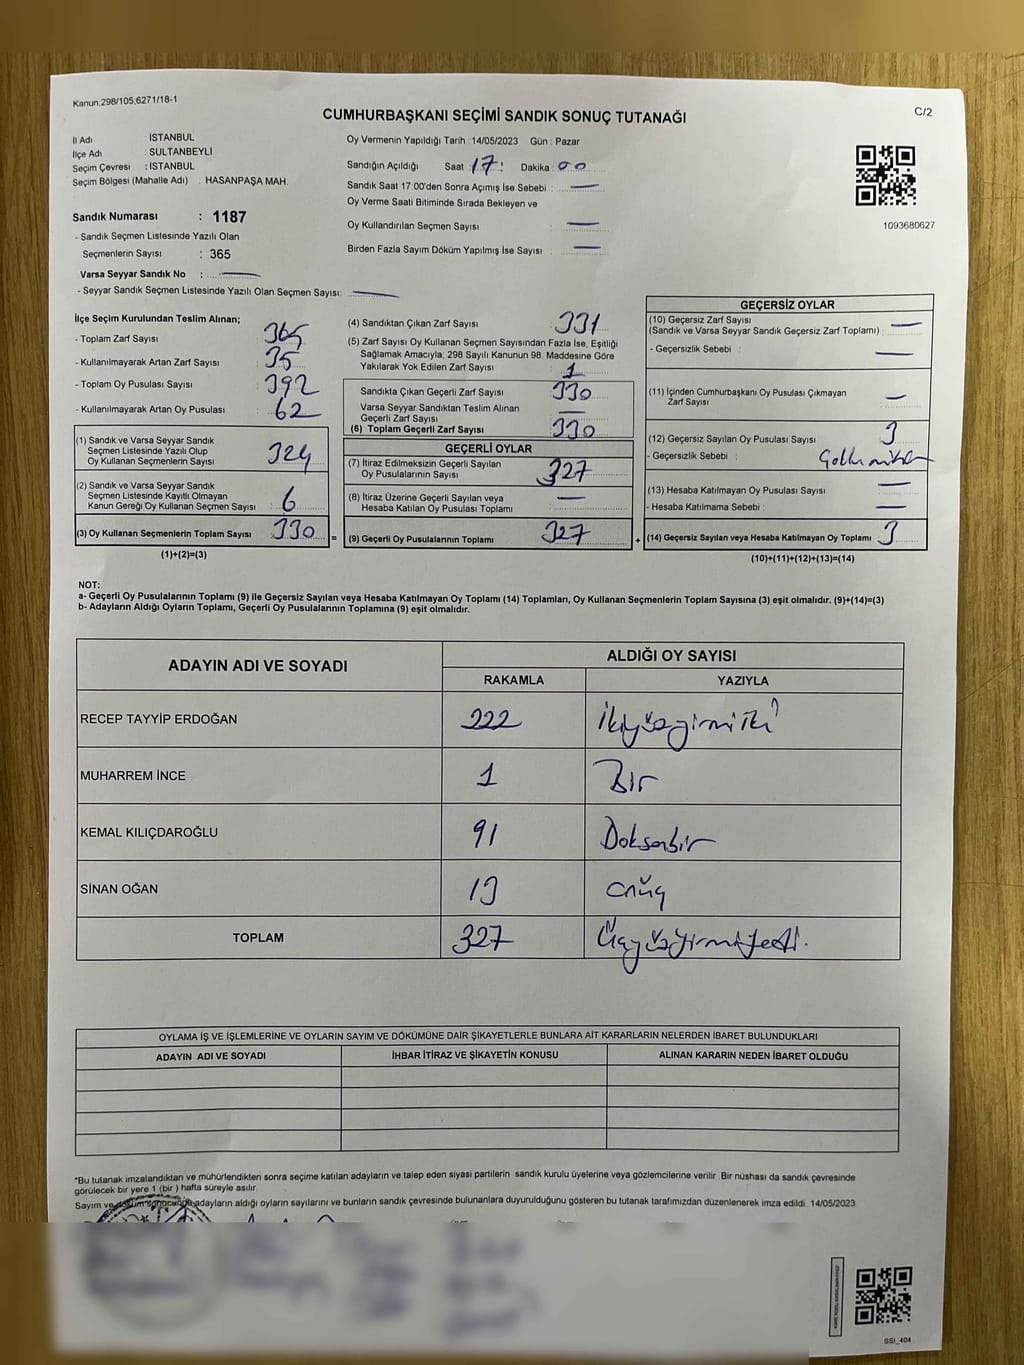 Kanun:298/105;6271/18-1
C/2
CUMHURBAŞKANI SEÇİMİ SANDIK SONUÇ TUTANAĞI
İl Adı : İSTANBUL
İlçe Adı : SULTANBEYLİ
Seçim Çevresi : İSTANBUL
Seçim Bölgesi (Mahalle Adı) : HASANPAŞA MAH.
Sandık Numarası : 1187
- Sandık Seçmen Listesinde Yazılı Olan
Seçmenlerin Sayısı : 365
Varsa Seyyar Sandık No : —
- Seyyar Sandık Seçmen Listesinde Yazılı Olan Seçmen Sayısı: —
Oy Vermenin Yapıldığı Tarih :14/05/2023 Gün : Pazar
Sandığın Açıldığı Saat 17: Dakika : 00
Sandık Saat 17:00'den Sonra Açımış İse Sebebi : —
Oy Verme Saati Bitiminde Sırada Bekleyen ve
Oy Kullandırılan Seçmen Sayısı : —
Birden Fazla Sayım Döküm Yapılmış İse Sayısı : —
1093680627
İlçe Seçim Kurulundan Teslim Alınan;
- Toplam Zarf Sayısı : 365
- Kullanılmayarak Artan Zarf Sayısı : 35
- Toplam Oy Pusulası Sayısı : 392
- Kullanılmayarak Artan Oy Pusulası : 62
(1) Sandık ve Varsa Seyyar Sandık
Seçmen Listesinde Yazılı Olup
Oy Kullanan Seçmenlerin Sayısı : 324
(2) Sandık ve Varsa Seyyar Sandık
Seçmen Listesinde Kayıtlı Olmayan
Kanun Gereği Oy Kullanan Seçmen Sayısı : 6
(3) Oy Kullanan Seçmenlerin Toplam Sayısı : 330
(1)+(2)=(3)
(4) Sandıktan Çıkan Zarf Sayısı : 331
(5) Zarf Sayısı Oy Kullanan Seçmen Sayısından Fazla İse, Eşitliği
Sağlamak Amacıyla; 298 Sayılı Kanunun 98. Maddesine Göre
Yakılarak Yok Edilen Zarf Sayısı : 1
Sandıkta Çıkan Geçerli Zarf Sayısı : 330
Varsa Seyyar Sandıktan Teslim Alınan
Geçerli Zarf Sayısı : —
(6) Toplam Geçerli Zarf Sayısı : 330
GEÇERLİ OYLAR
(7) İtiraz Edilmeksizin Geçerli Sayılan
Oy Pusulalarının Sayısı : 327
(8) İtiraz Üzerine Geçerli Sayılan veya
Hesaba Katılan Oy Pusulası Toplamı : —
= (9) Geçerli Oy Pusulalarının Toplamı : 327
GEÇERSİZ OYLAR
(10) Geçersiz Zarf Sayısı
(Sandık ve Varsa Seyyar Sandık Geçersiz Zarf Toplamı) : —
- Geçersizlik Sebebi : —
(11) İçinden Cumhurbaşkanı Oy Pusulası Çıkmayan
Zarf Sayısı : —
(12) Geçersiz Sayılan Oy Pusulası Sayısı : 3
- Geçersizlik Sebebi :
(13) Hesaba Katılmayan Oy Pusulası Sayısı : —
- Hesaba Katılmama Sebebi : —
+ (14) Geçersiz Sayılan veya Hesaba Katılmayan Oy Toplamı : 3
(10)+(11)+(12)+(13)=(14)
NOT:
a- Geçerli Oy Pusulalarının Toplamı (9) ile Geçersiz Sayılan veya Hesaba Katılmayan Oy Toplamı (14) Toplamları, Oy Kullanan Seçmenlerin Toplam Sayısına (3) eşit olmalıdır. (9)+(14)=(3)
b- Adayların Aldığı Oyların Toplamı, Geçerli Oy Pusulalarının Toplamına (9) eşit olmalıdır.
ADAYIN ADI VE SOYADI ALDIĞI OY SAYISI
RAKAMLA YAZIYLA
RECEP TAYYİP ERDOĞAN 222 İkiyüzyirmiiki
MUHARREM İNCE 1 Bir
KEMAL KILIÇDAROĞLU 91 Doksanbir
SİNAN OĞAN 13 onüç
TOPLAM 327 Üçyüzyirmiyedi.
OYLAMA İŞ VE İŞLEMLERİNE VE OYLARIN SAYIM VE DÖKÜMÜNE DAİR ŞİKAYETLERLE BUNLARA AİT KARARLARIN NELERDEN İBARET BULUNDUKLARI
ADAYIN ADI VE SOYADI İHBAR İTİRAZ VE ŞİKAYETİN KONUSU ALINAN KARARIN NEDEN İBARET OLDUĞU
*Bu tutanak imzalandıktan ve mühürlendikten sonra seçime katılan adayların ve talep eden siyasi partilerin sandık kurulu üyelerine veya gözlemcilerine verilir. Bir nüshası da sandık çevresinde
görülecek bir yere 1 (bir ) hafta süreyle asılır.
Sayım ve döküm sonucunda adayların aldığı oyların sayılarını ve bunların sandık çevresinde bulunanlara duyurulduğunu gösteren bu tutanak tarafımızdan düzenlenerek imza edildi. 14/05/2023
SSI_404